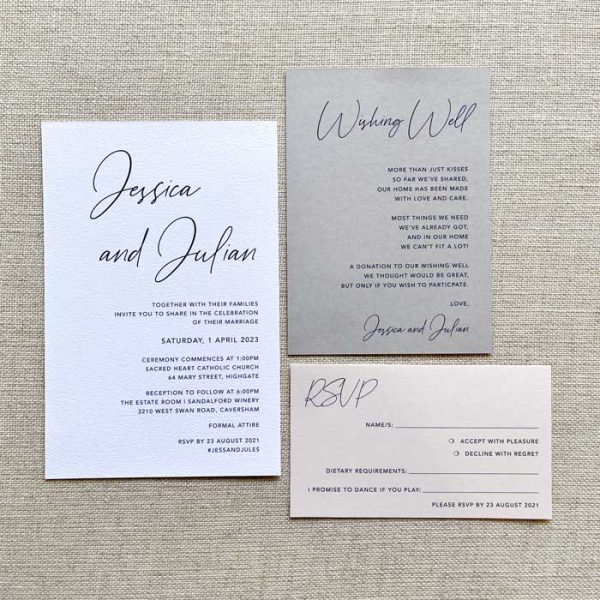 Jessica
and Julian
TOGETHER WITH THEIR FAMILIES
INVITE YOU TO SHARE IN THE CELEBRATION
OF THEIR MARRIAGE
SATURDAY, 1 APRIL 2023
CEREMONY COMMENCES AT 1:00PM
SACRED HEART CATHOLIC CHURCH
64 MARY STREET, HIGHGATE
RECEPTION TO FOLLOW AT 6:00PM
THE ESTATE ROOM | SANDALFORD WINERY
3210 WEST SWAN ROAD, CAVERSHAM
FORMAL ATTIRE
RSVP BY 23 AUGUST 2021
#JESSANDJULES
Wishing Well
MORE THAN JUST KISSES
SO FAR WE'VE SHARED,
OUR HOME HAS BEEN MADE
WITH LOVE AND CARE.
MOST THINGS WE NEED
WE'VE ALREADY GOT,
AND IN OUR HOME
WE CAN'T FIT A LOT!
A DONATION TO OUR WISHING WELL
WE THOUGHT WOULD BE GREAT,
BUT ONLY IF YOU WISH TO PARTICPATE.
LOVE,
Jessica and Julian
RSVP
NAME/S:
ACCEPT WITH PLEASURE
DECLINE WITH REGRET
DIETARY REQUIREMENTS:
I PROMISE TO DANCE IF YOU PLAY:
PLEASE RSVP BY 23 AUGUST 2021